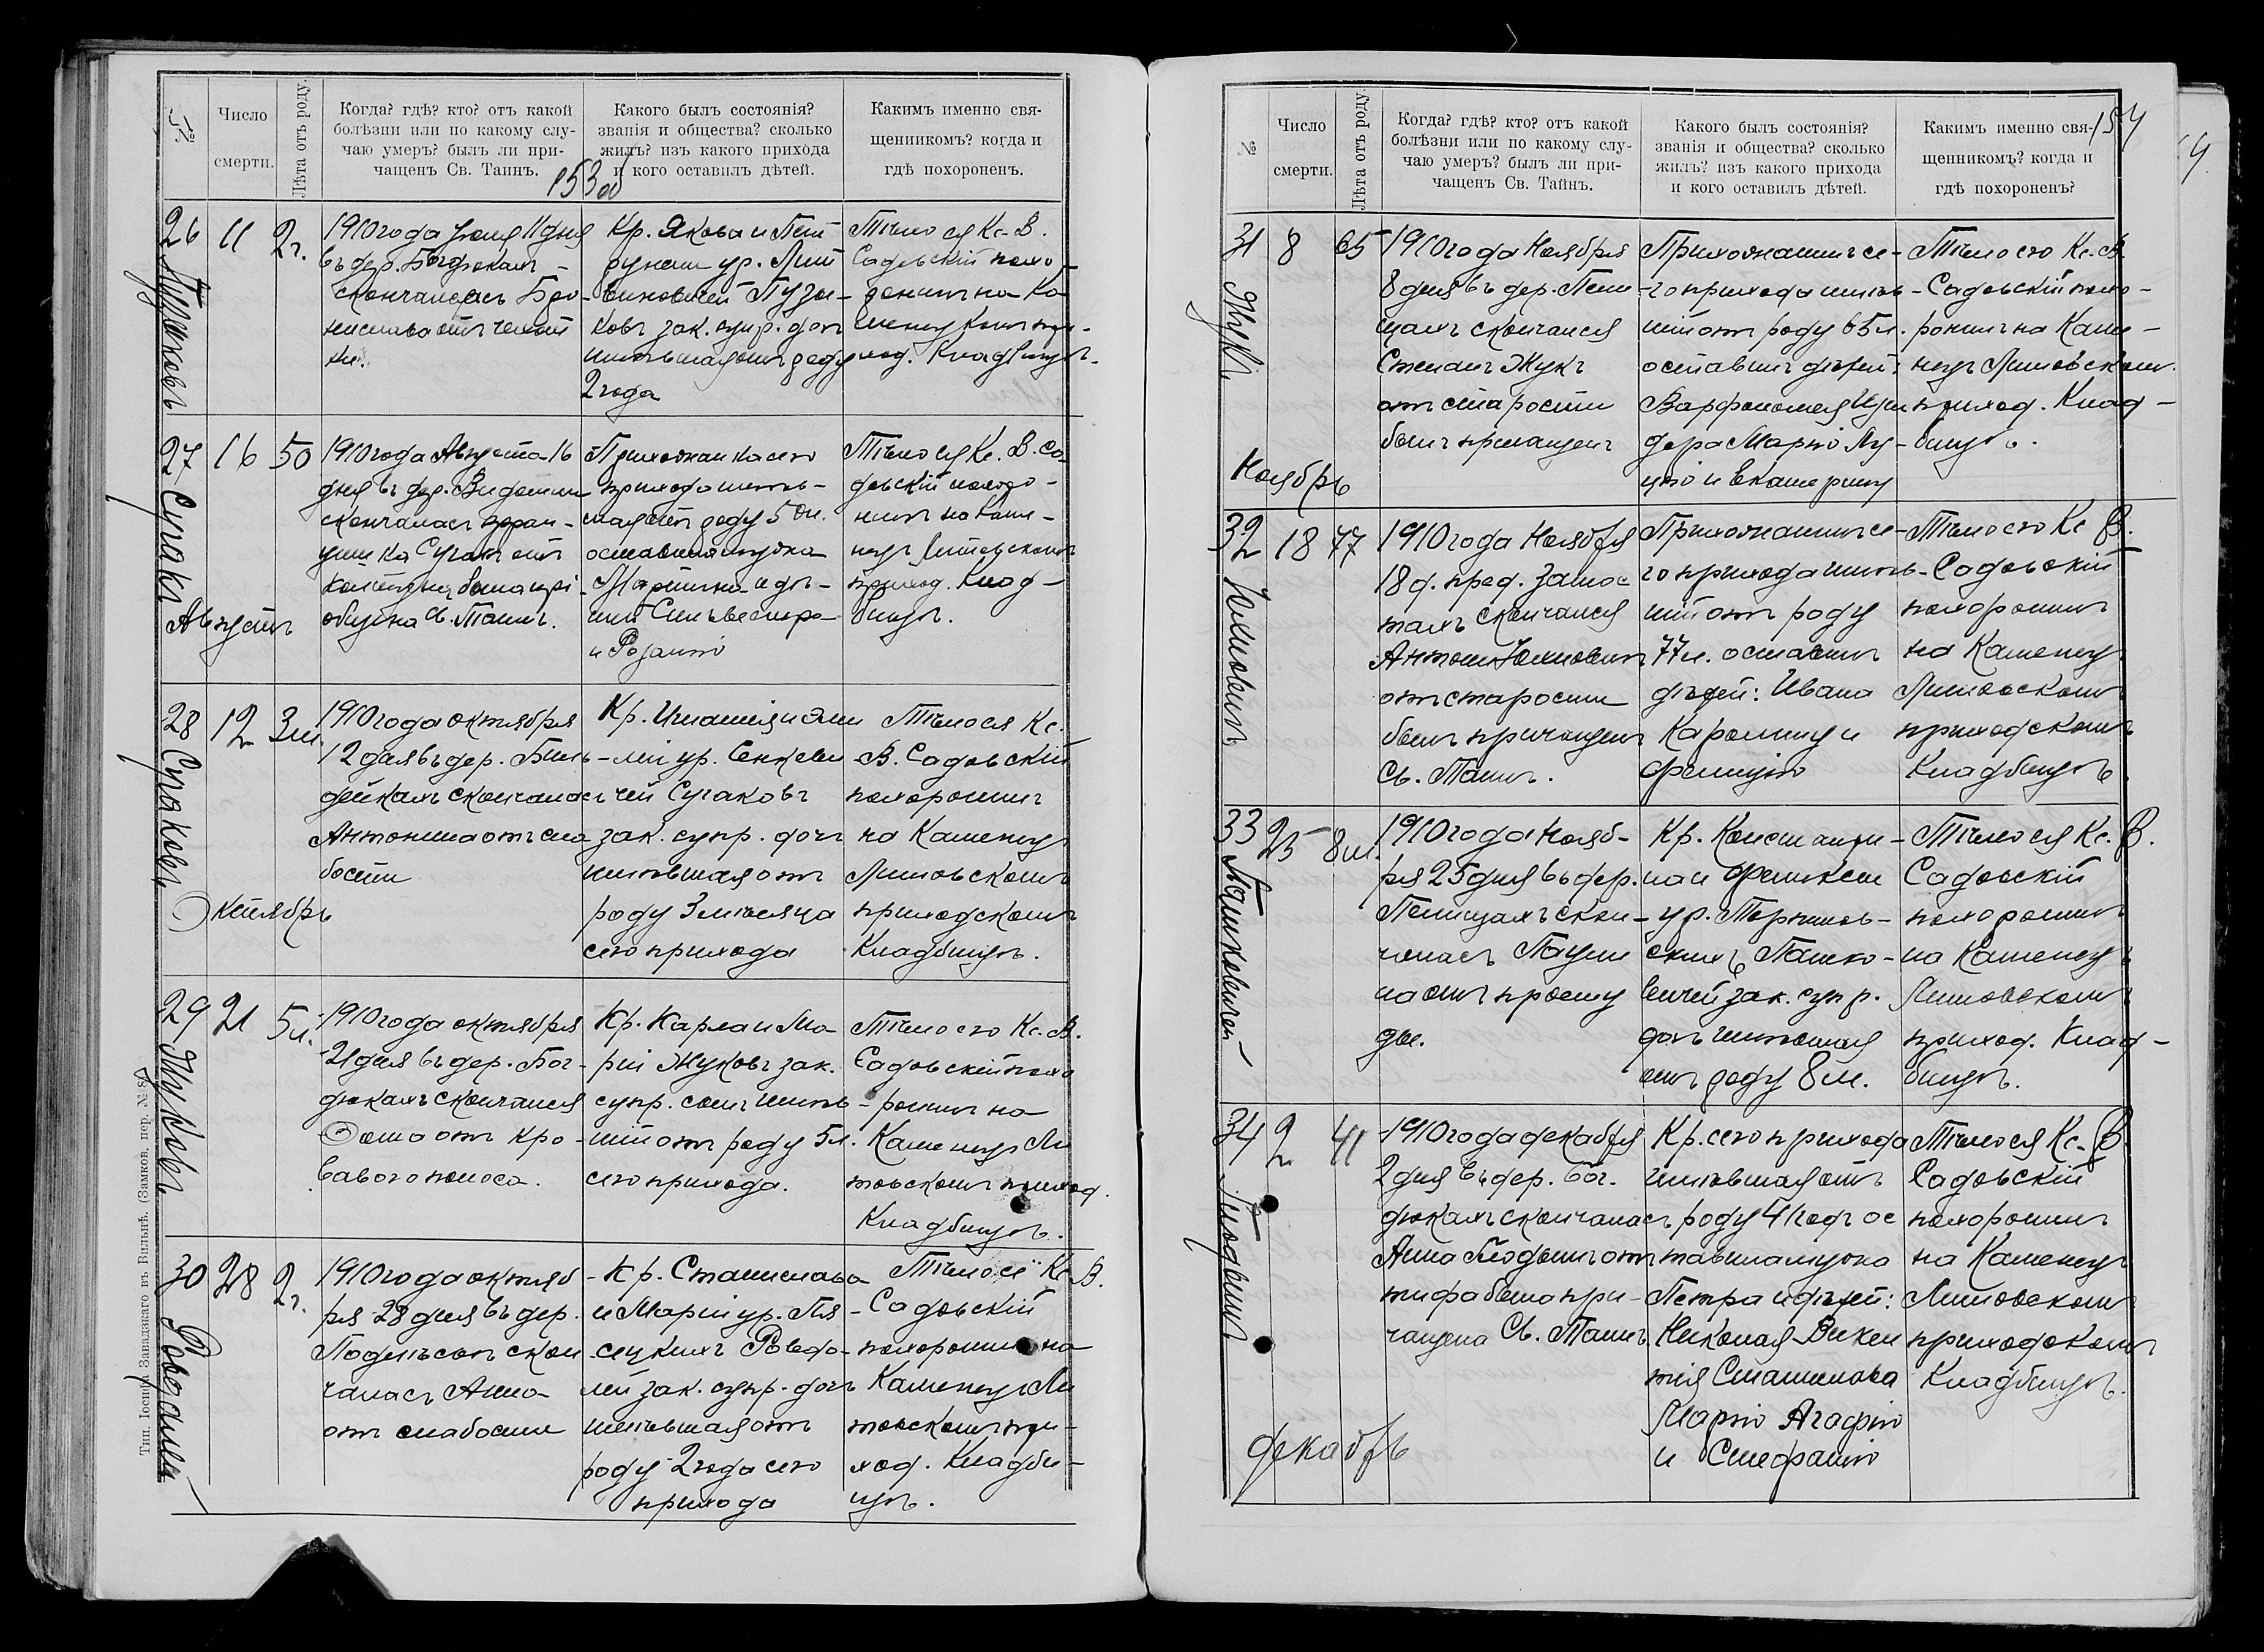 №
Число
смерти.
Лѣта отъ роду.
Когда? гдѣ? кто? отъ какой
болѣзни или по какому слу-
чаю умеръ? былъ ли при-
чащенъ Св. Таинъ.
Какого былъ состоянія?
званія и общества? сколько
жилъ? изъ какого прихода
и кого оставилъ дѣтей.
Какимъ именно свя-
щенникомъ? когда и
гдѣ похороненъ.
153об
26
11
2г.
1910 года Іюля 11 дня
въ дер.
скончалась Бро-
нислава отъ
Кр. Якова и Пет
рунели ур. Лит
виновичей Пузы-
ковъ зак. супр. дочь
имѣвшая отъ роду
2 года
Тѣло ея Кс. В.
Садовскій похо-
ронилъ на Ка
менец
ход. Кладбищѣ.
27
Сугака
Августъ
16
50
1910 года Августа 16
дня въ дер. Видомли
скончалась Фран-
цишка Сугака отъ
была прі
общена Св. Таинъ.
Прихожанка сего
прихода имѣв-
шая отъ роду 50 л.
оставила мужа
Мартина и дѣ-
тей Сильвестра
и Розалію
Тѣло ея Кс. В. Са
довскій похоро-
нилъ на Каме-
нец Литовскомъ
приход. Клад-
бищѣ.
28
Сугаковъ
Октябрь
12
3 м.
1910 года октября
12 дня въ дер. Биль-
дейкахъ скончалась
Антонина отъ сла
бости
Кр. Игнатія и Эми
ліи ур. Сенкеви
чей Сугаковъ
зак. супр. дочь
имѣвшая отъ
роду 3 мѣсяца
сего прихода
Тѣло ея Кс.
В. Садовскій
похоронилъ
на Каменец
Литовскомъ
приходскомъ
Кладбищѣ.
29
Жуковъ
21
5 л.
1910 года октября
21 дня въ дер. Бог-
дюкахъ скончался
Ѳома отъ кро-
ваваго поноса.
Кр. Карла и Ма-
ріи Жуковъ зак.
супр. сынъ имѣв-
шій отъ роду 5 л.
сего прихода.
Тѣло его Кс. В.
Садовскій похо
ронилъ на
Каменец Ли
товскомъ приход.
Кладбищѣ.
30
28
2г.
1910 года октяб
ря 28 дня въ дер.
скон
чалась Анна
отъ слабости
Кр. Станислава
и Маріи ур. Пя-
сецкихъ
зак. супр. дочь
имѣвшая отъ
роду 2 года сего
прихода
Тѣло ея Кс. В.
Садовскій
похоронилъ на
Каменец Ли
товскомъ при-
ход. Кладби-
щѣ.
Тип. Іосифа Завадзкаго въ Вильнѣ. (Замков. пер. № 8/7)
154
№
Число
смерти.
Лѣта отъ роду.
Когда? гдѣ? кто? отъ какой
болѣзни или по какому слу-
чаю умеръ? былъ ли при-
чащенъ Св. Таинъ.
Какого былъ состоянія?
званія и общества? сколько
жилъ? изъ какого прихода
и кого оставилъ дѣтей.
Какимъ именно свя-
щенникомъ? когда и
гдѣ похороненъ?
31
Жукъ
Ноябрь
8
65
1910 года Ноября
8 дня въ дер. Пени
щахъ скончался
Степанъ Жукъ
отъ старости
былъ причащенъ
Прихожанинъ се-
го прихода имѣв
шій отъ роду 65 л.
оставилъ дѣтей:
Варфоломея Изи
дора Марію Лу-
цію и Екатерину
Тѣло его Кс. В.
Садовскій похо-
ронилъ на Каме-
нец Литовскомъ
приход. Клад-
бищѣ.
32
Юхновичъ
18
77
1910 года Ноября
18 д. пред. Замос
тахъ скончался
Антонъ Юхновичъ
отъ старости
былъ причащенъ
Св. Таинъ.
Прихожанинъ се-
го прихода имѣв
шій отъ роду
77 л. оставилъ
дѣтей: Ивана
Каролину и
Фелицію
Тѣло его Кс В.
Садовскій
похоронилъ
на Каменец
Литовскомъ
приходскомъ
Кладбищѣ.
33
Пашкевичей
25
8 м.
1910 года Нояб-
ря 25 дня въ дер.
Пенищахъ скон-
чалась Паули
на отъ просту
ды.
Кр. Константи-
на и Фелиціи
ур.
Пашке-
вичей зак. супр.
дочь имѣвшая
отъ роду 8 м.
Тѣло ея Кс. В.
Садовскій
похоронилъ
на Каменец
Литовскомъ
приход. Клад-
бищѣ.
34
Декабрь
2
41
1910 года декабря
2 дня въ дер. Бог-
дюкахъ скончалась
Анна
отъ
тифа была при-
чащена Св. Таинъ.
Кр. сего прихода
имѣвшая отъ
роду 41 годъ ос
тавила мужа
Петра и дѣтей:
Николая Викен
тія Станислава
Марію Агафію
и Стефанію
Тѣло ея Кс. В.
Садовскій
похоронилъ
на Каменец
Литовскомъ
приходскомъ
Кладбищѣ.